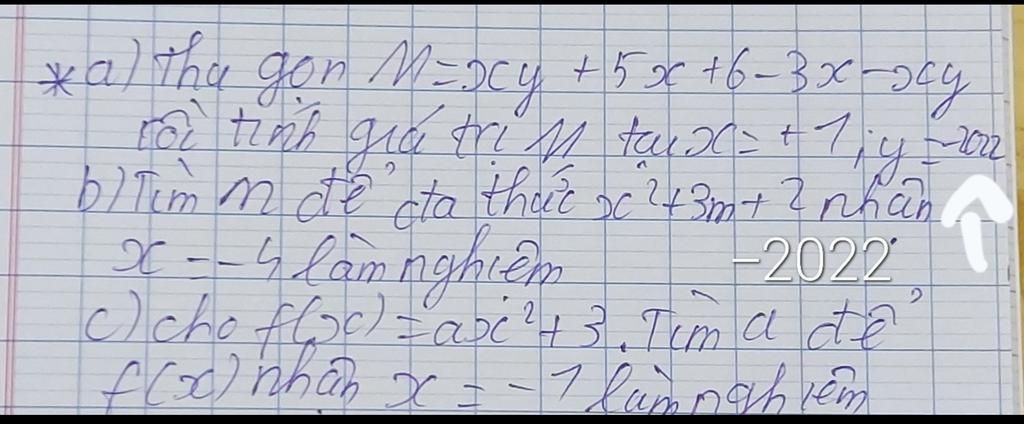 *a) Thu gọn M=xy +5x+6-3x-xy
rồi tính giá trị M tại x=+1; y=-2022
b) Tìm m để đa thức x²+3m+2 nhận
x=-4 làm nghiệm
-2022
c) cho f(x)=ax²+3. Tìm a để
f(x) nhận x=-1 làm nghiệm